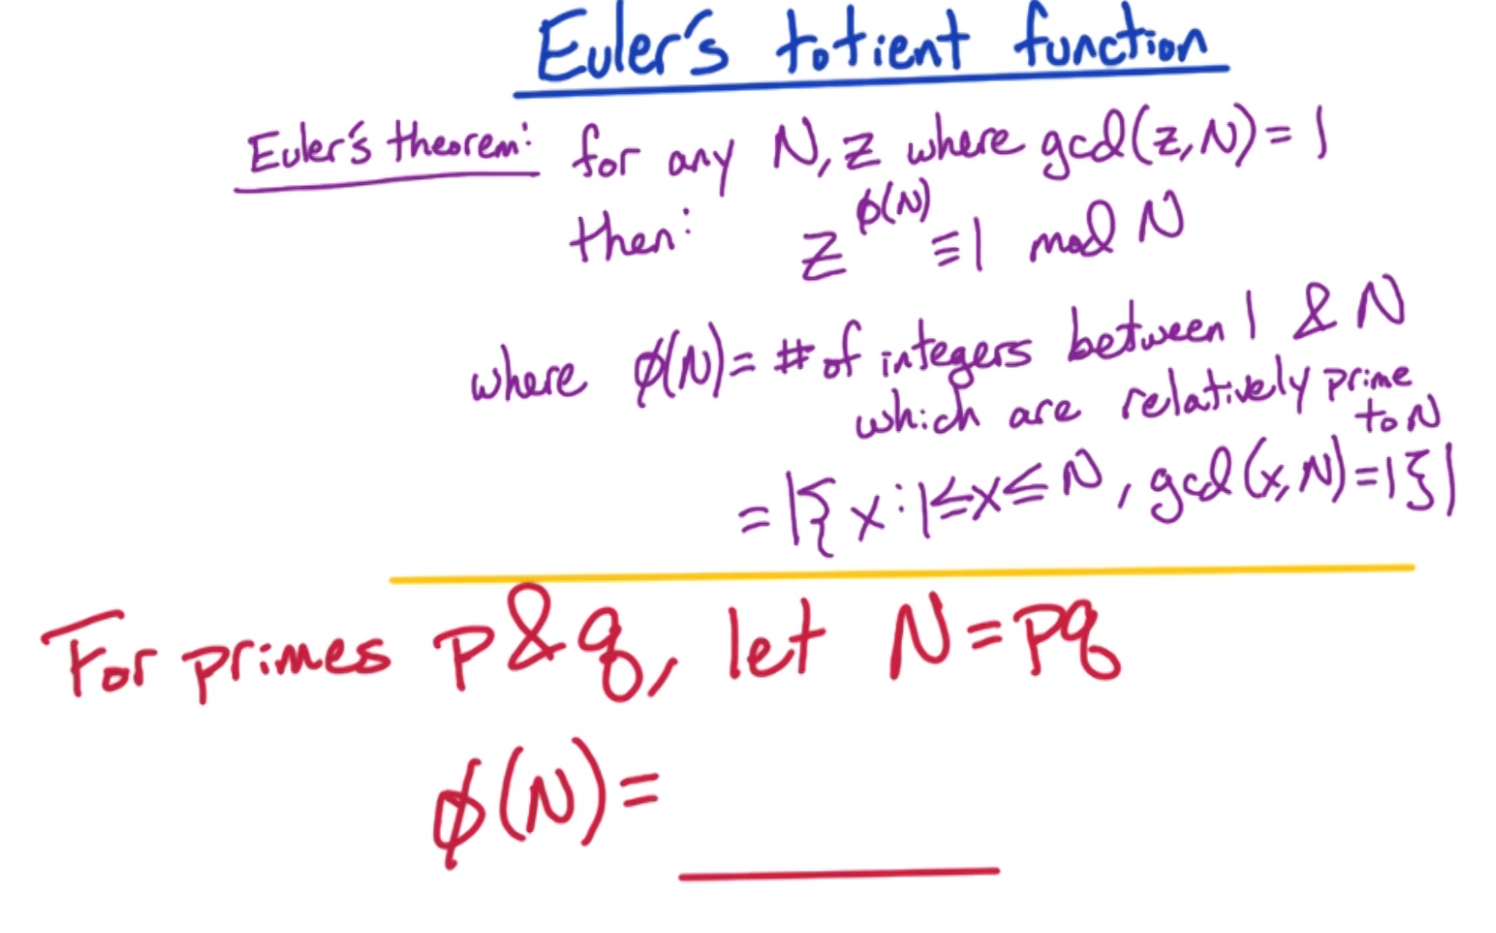 Euler's totient function
Euler's theorem: for any N, z where gcd(z, N) = 1
then: z^ϕ(N) ≡ 1 mod N
where ϕ(N) = # of integers between 1 & N
which are relatively prime
to N
= |{x : 1 ≤ x ≤ N, gcd(x, N) = 1}|
For primes p & q, let N = pq
ϕ(N) =